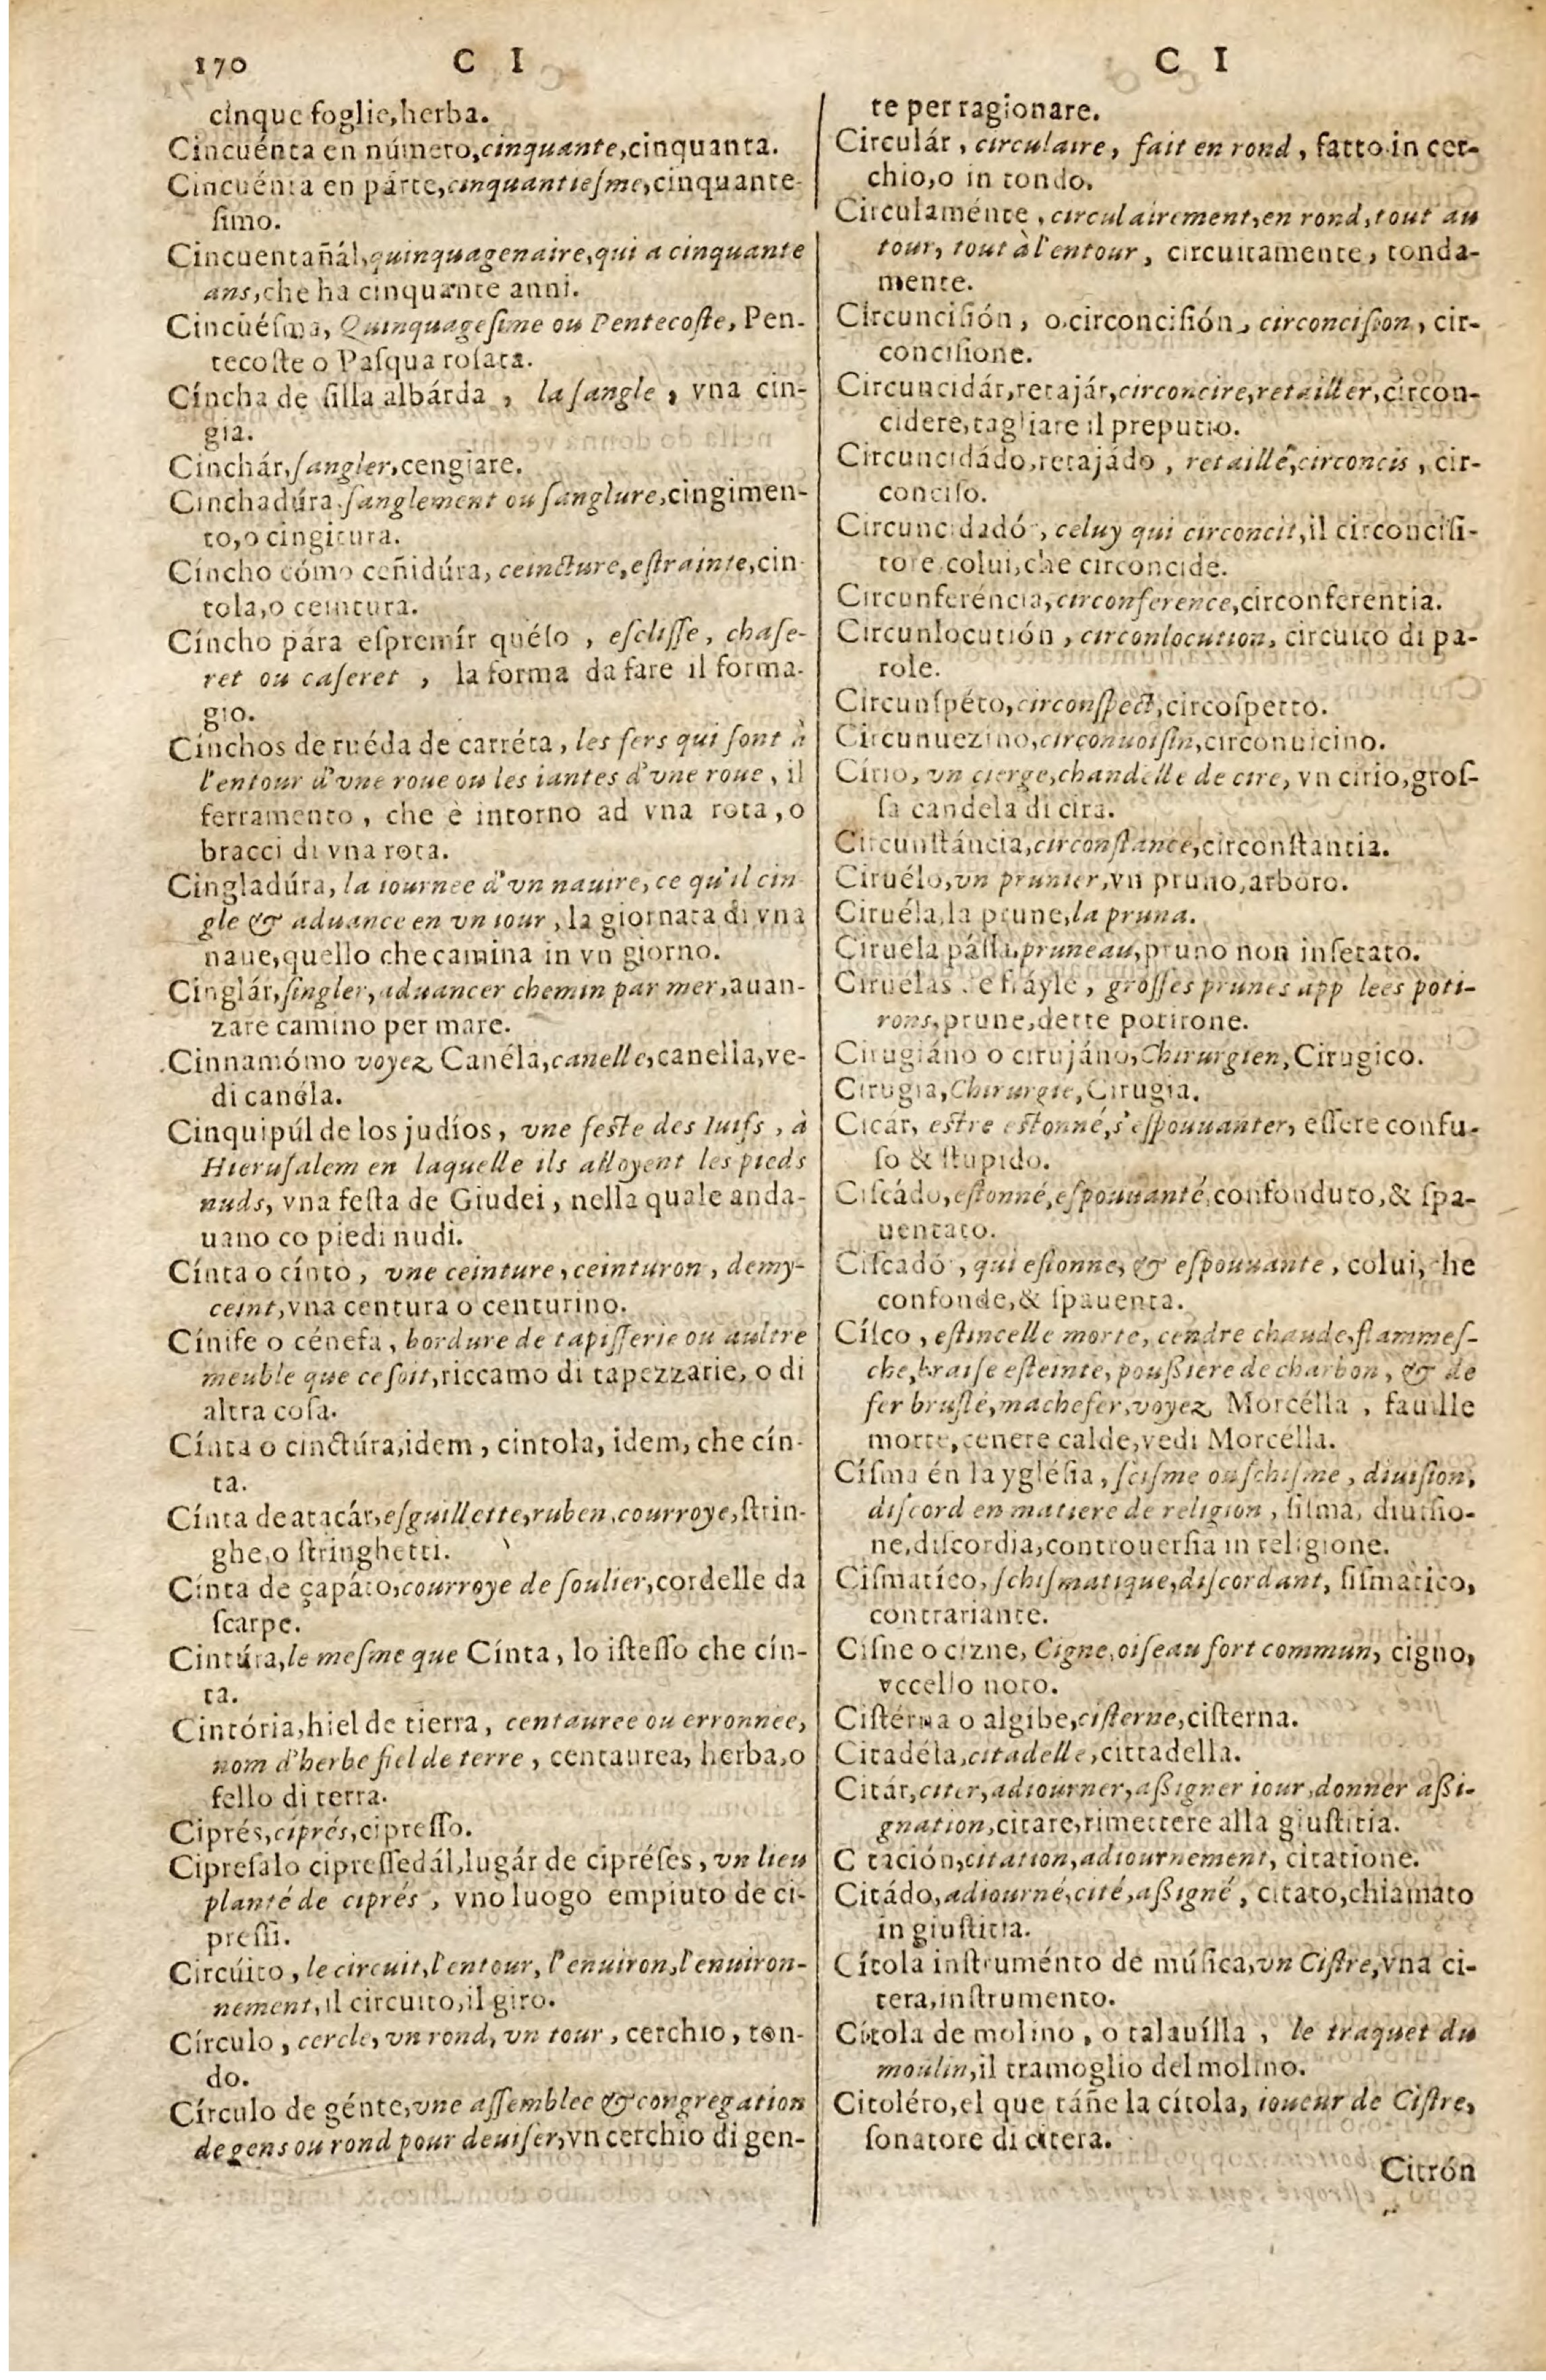 170 C I
cinque foglie, herba.
Cincuénta en número, cinquante, cinquanta.
Cincuénta en párte, cinquantiesme, cinquante-
simo.
Cincuentañál, quinquagenaire, qui a cinquante
ans, che ha cinquante anni.
Cincüésma, Quinquagesime ou Pentecoste, Pen-
tecoste o Pasqua rosata.
Cíncha de silla albárda, la sangle, vna cin-
gia.
Cinchár, sangler, cengiare.
Cinchadúra, sanglement ou sanglure, cingimen-
to, o cingitura.
Cíncho cómo ceñidúra, ceincture, estrainte, cin
tola, o ceintura.
Cíncho pára espremír quéso, esclisse, chase-
ret ou caseret, la forma da fare il forma-
gio.
Cínchos de ruéda de carréta, les fers qui sont à
l'entour d'vne roue ou les iantes d'vne roue, il
ferramento, che è intorno ad vna rota, o
bracci di vna rota.
Cingladúra, la iournee d'vn nauire, ce qu'il cin
gle & aduance en vn iour, la giornata di vna
naue, quello che camina in vn giorno.
Cinglár, singler, aduancer chemin par mer, auan-
zare camino per mare.
Cinnamómo voyez Canéla, canelle, canella, ve-
di canéla.
Cinquipúl de los judíos, vne feste des Iuifs, à
Hierusalem en laquelle ils alloyent les pieds
nuds, vna festa de Giudei, nella quale anda-
uano co piedi nudi.
Cínta o cínto, vne ceinture, ceinturon, demy-
ceint, vna centura o centurino.
Cínife o cénefa, bordure de tapisserie ou aultre
meuble que ce soit, riccamo di tapezzarie, o di
altra cosa.
Cínta o cinctúra, idem, cintola, idem, che cín-
ta.
Cínta de atacár, esguillette, ruben, courroye, strin-
ghe, o stringhetti.
Cínta de çapáto, courroye de soulier, cordelle da
scarpe.
Cintúra, le mesme que Cínta, lo istesso che cín-
ta.
Cintória, hiel de tierra, centauree ou erronnee,
nom d'herbe fiel de terre, centaurea, herba, o
fello di terra.
Ciprés, ciprés, cipresso.
Cipresalo cipressedál, lugár de cipréses, vn lieu
planté de ciprés, vno luogo empiuto de ci-
pressi.
Circúito, le circuit, l'entour, l'enuiron, l'enuiron-
nement, il circuito, il giro.
Círculo, cercle, vn rond, vn tour, cerchio, ton-
do.
Círculo de génte, vne assemblee & congregation
de gens ou rond pour deuiser, vn cerchio di gen-
C I
te per ragionare.
Circulár, circulaire, fait en rond, fatto in cer-
chio, o in tondo.
Circulaménte, circulairement, en rond, tout au
tour, tout à l'entour, circuitamente, tonda-
mente.
Circuncisión, o circoncisión, circoncision, cir-
concisione.
Circuncidár, retajár, circoncire, retailler, circon-
cidere, tagliare il preputio.
Circuncidádo, retajádo, retaillé, circoncis, cir-
conciso.
Circuncidadó, celuy qui circoncit, il circoncisi-
tore, colui, che circoncide.
Circunferéncia, circonference, circonferentia.
Circunlocutión, circonlocution, circuito di pa-
role.
Circunspéto, circonspect, circospetto.
Circunuezino, circonuoisin, circonuicino.
Círio, vn cierge, chandelle de cire, vn cirio, gros-
sa candela di cira.
Circunstáncia, circonstance, circonstantia.
Ciruélo, vn prunier, vn pruno, arboro.
Ciruéla, la prune, la pruna.
Ciruela pássa, pruneau, pruno non insetato.
Ciruelas de fráyle, grosses prunes app lees poti-
rons, prune, dette potirone.
Cirugiáno o cirujáno, Chirurgien, Cirugico.
Cirugia, Chirurgie, Cirugia.
Cicár, estre estonné, s'espouuanter, essere confu-
so & stupido.
Ciscádo, estonné, espouuanté, confonduto, & spa-
uentato.
Ciscadó, qui estonne, & espouuante, colui, che
confonde, & spauenta.
Císco, estincelle morte, cendre chaude, flammes-
che, braise esteinte, poussiere de charbon, & de
fer bruslé, machefer, voyez Morcélla, fauille
morte, cenere calde, vedi Morcélla.
Císma én la yglésia, scisme ou schisme, diuision,
discord en matiere de religion, sisma, diuisio-
ne, discordia, controuersia in religione.
Cismatíco, schismatique, discordant, sismàtico,
contrariante.
Cisne o cizne, Cigne, oiseau fort commun, cigno,
vccello noto.
Cistérna o algibe, cisterne, cisterna.
Citadéla, citadelle, cittadella.
Citár, citer, adiourner, assigner iour, donner assi-
gnation, citare, rimettere alla giustitia.
C tación, citation, adiournement, citatione.
Citádo, adiourné, cité, assigné, citato, chiamato
in giustitia.
Cítola instruménto de música, vn Cistre, vna ci-
tera, instrumento.
Cítola de molino, o talauílla, le traquet du
moulin, il tramoglio del molino.
Citoléro, el que táñe la cítola, ioueur de Cistre,
sonatore di citera.
Citrón